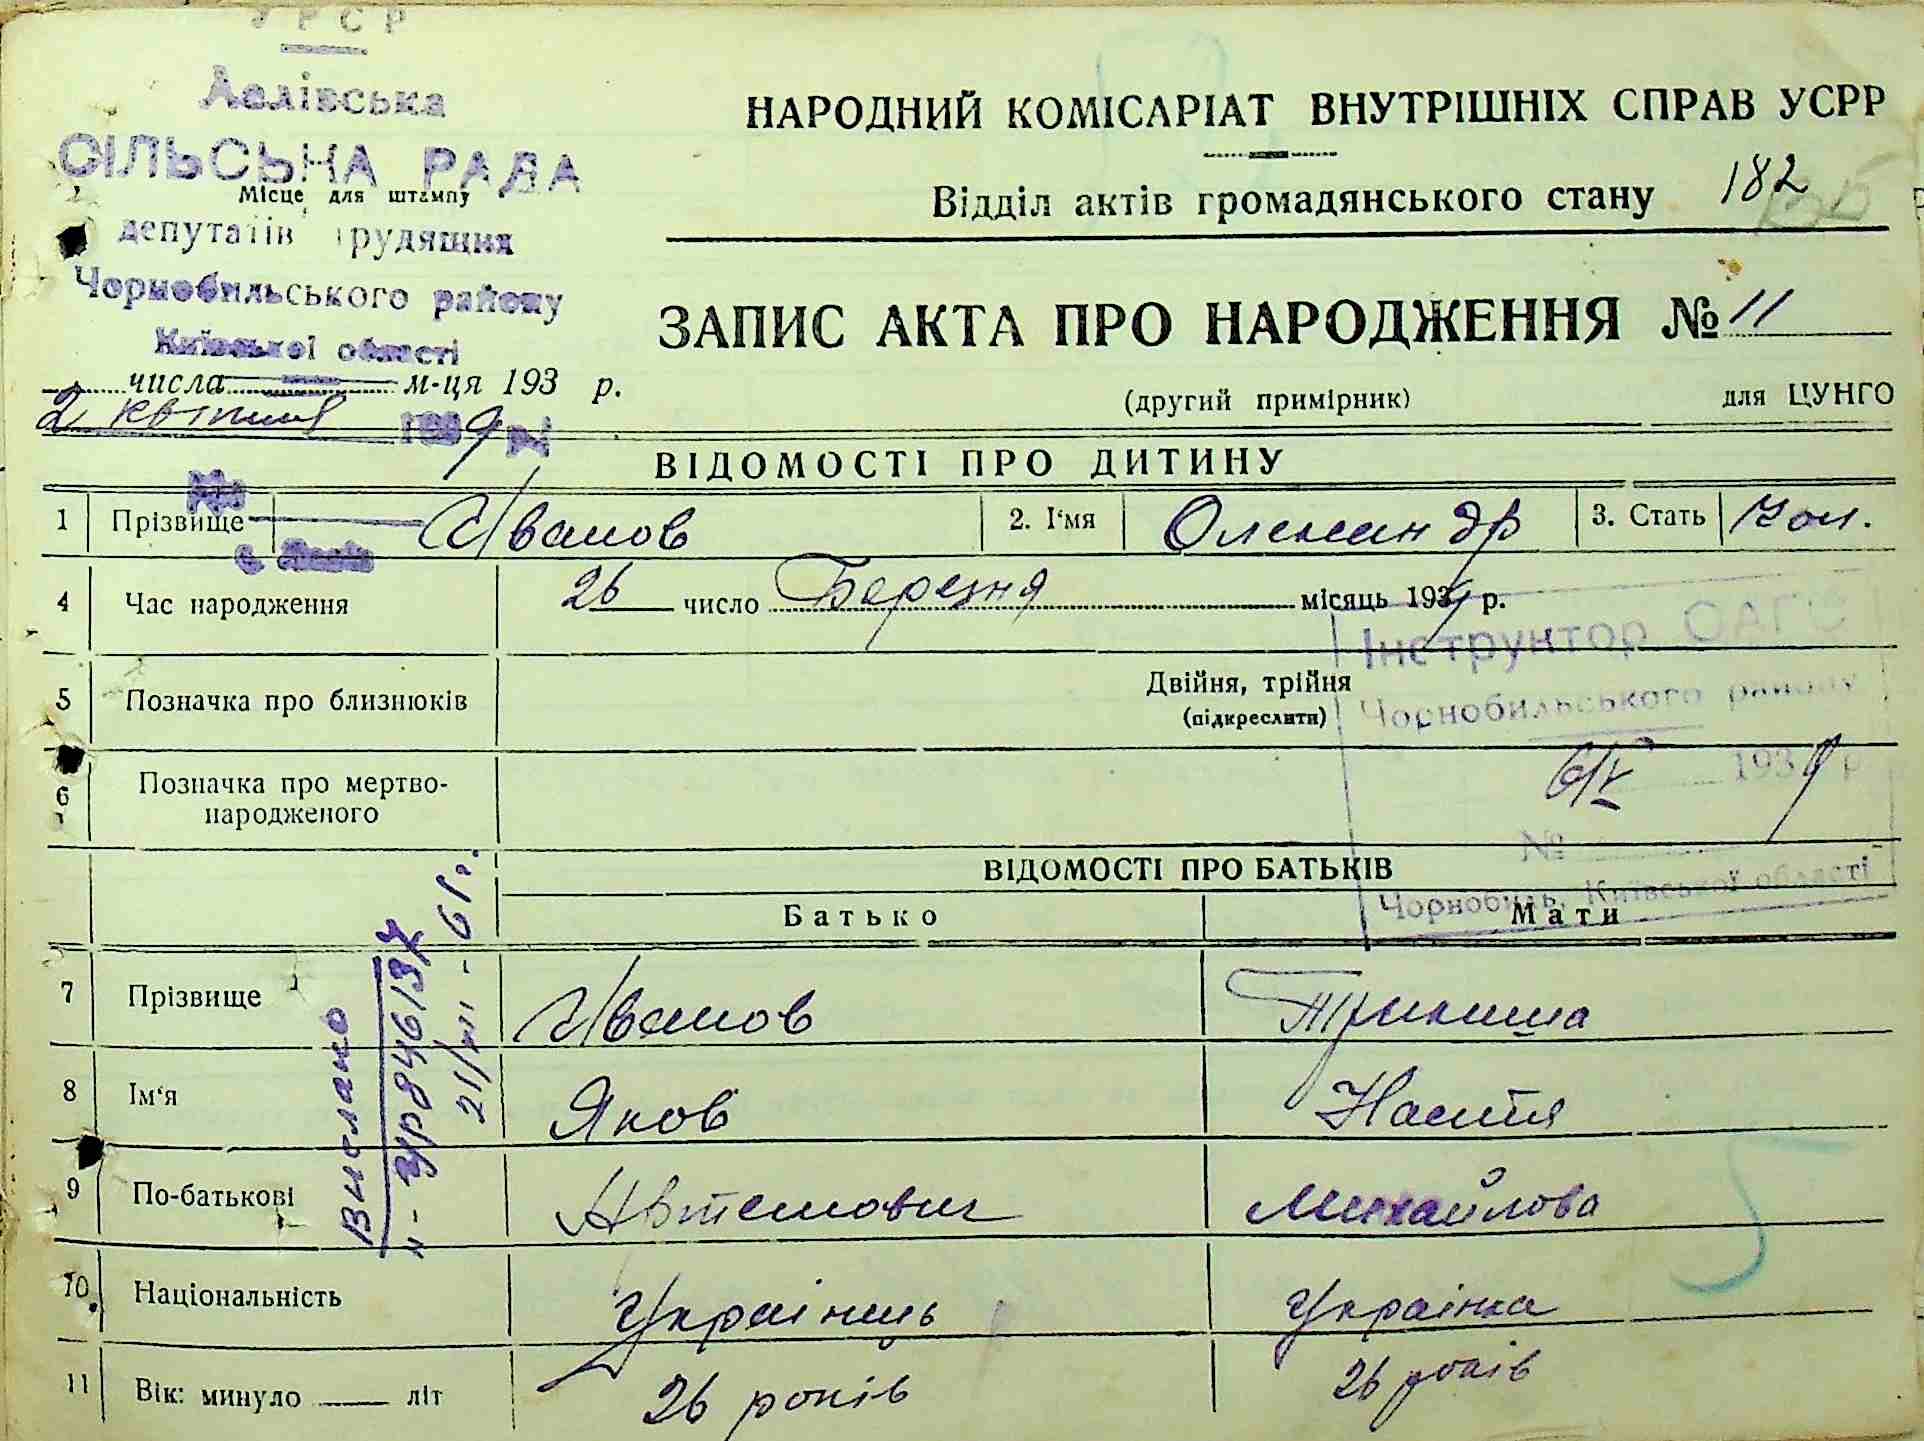 УРСР
СІЛЬСЬКА РАДА
Місце для штампу
депутатів трудящия
Чорнобильського району
Київської області
числа м-ця 193 р.
2 квітня 1939 р.
№
НАРОДНИЙ КОМІСАРІАТ ВНУТРІШНІХ СПРАВ УСРР
Відділ актів громадянського стану 182
ЗАПИС АКТА ПРО НАРОДЖЕННЯ № 11
(другий примірник) для ЦУНГО
ВІДОМОСТІ ПРО ДИТИНУ
1 Прізвище Иванов 2. І'мя Олександр 3. Стать чол.
4 Час народження 26 число Березня місяць 1939 р.
5 Позначка про близнюків Двійня, трійня
(підкреслити)
Інструктор ОАГС
Чорнобильського району
1939 р
№
Чорнобиль, Київської області
6 Позначка про мертво-
народженого
ВІДОМОСТІ ПРО БАТЬКІВ
Батько Мати
7 Прізвище Иванов
8 Ім'я Яков Настя
9 По-батькові Автемович Михайлова
10 Національність Украінець Украінка
11 Вік: минуло літ 26 років 26 років
Выслано
21/VII - 61 г.